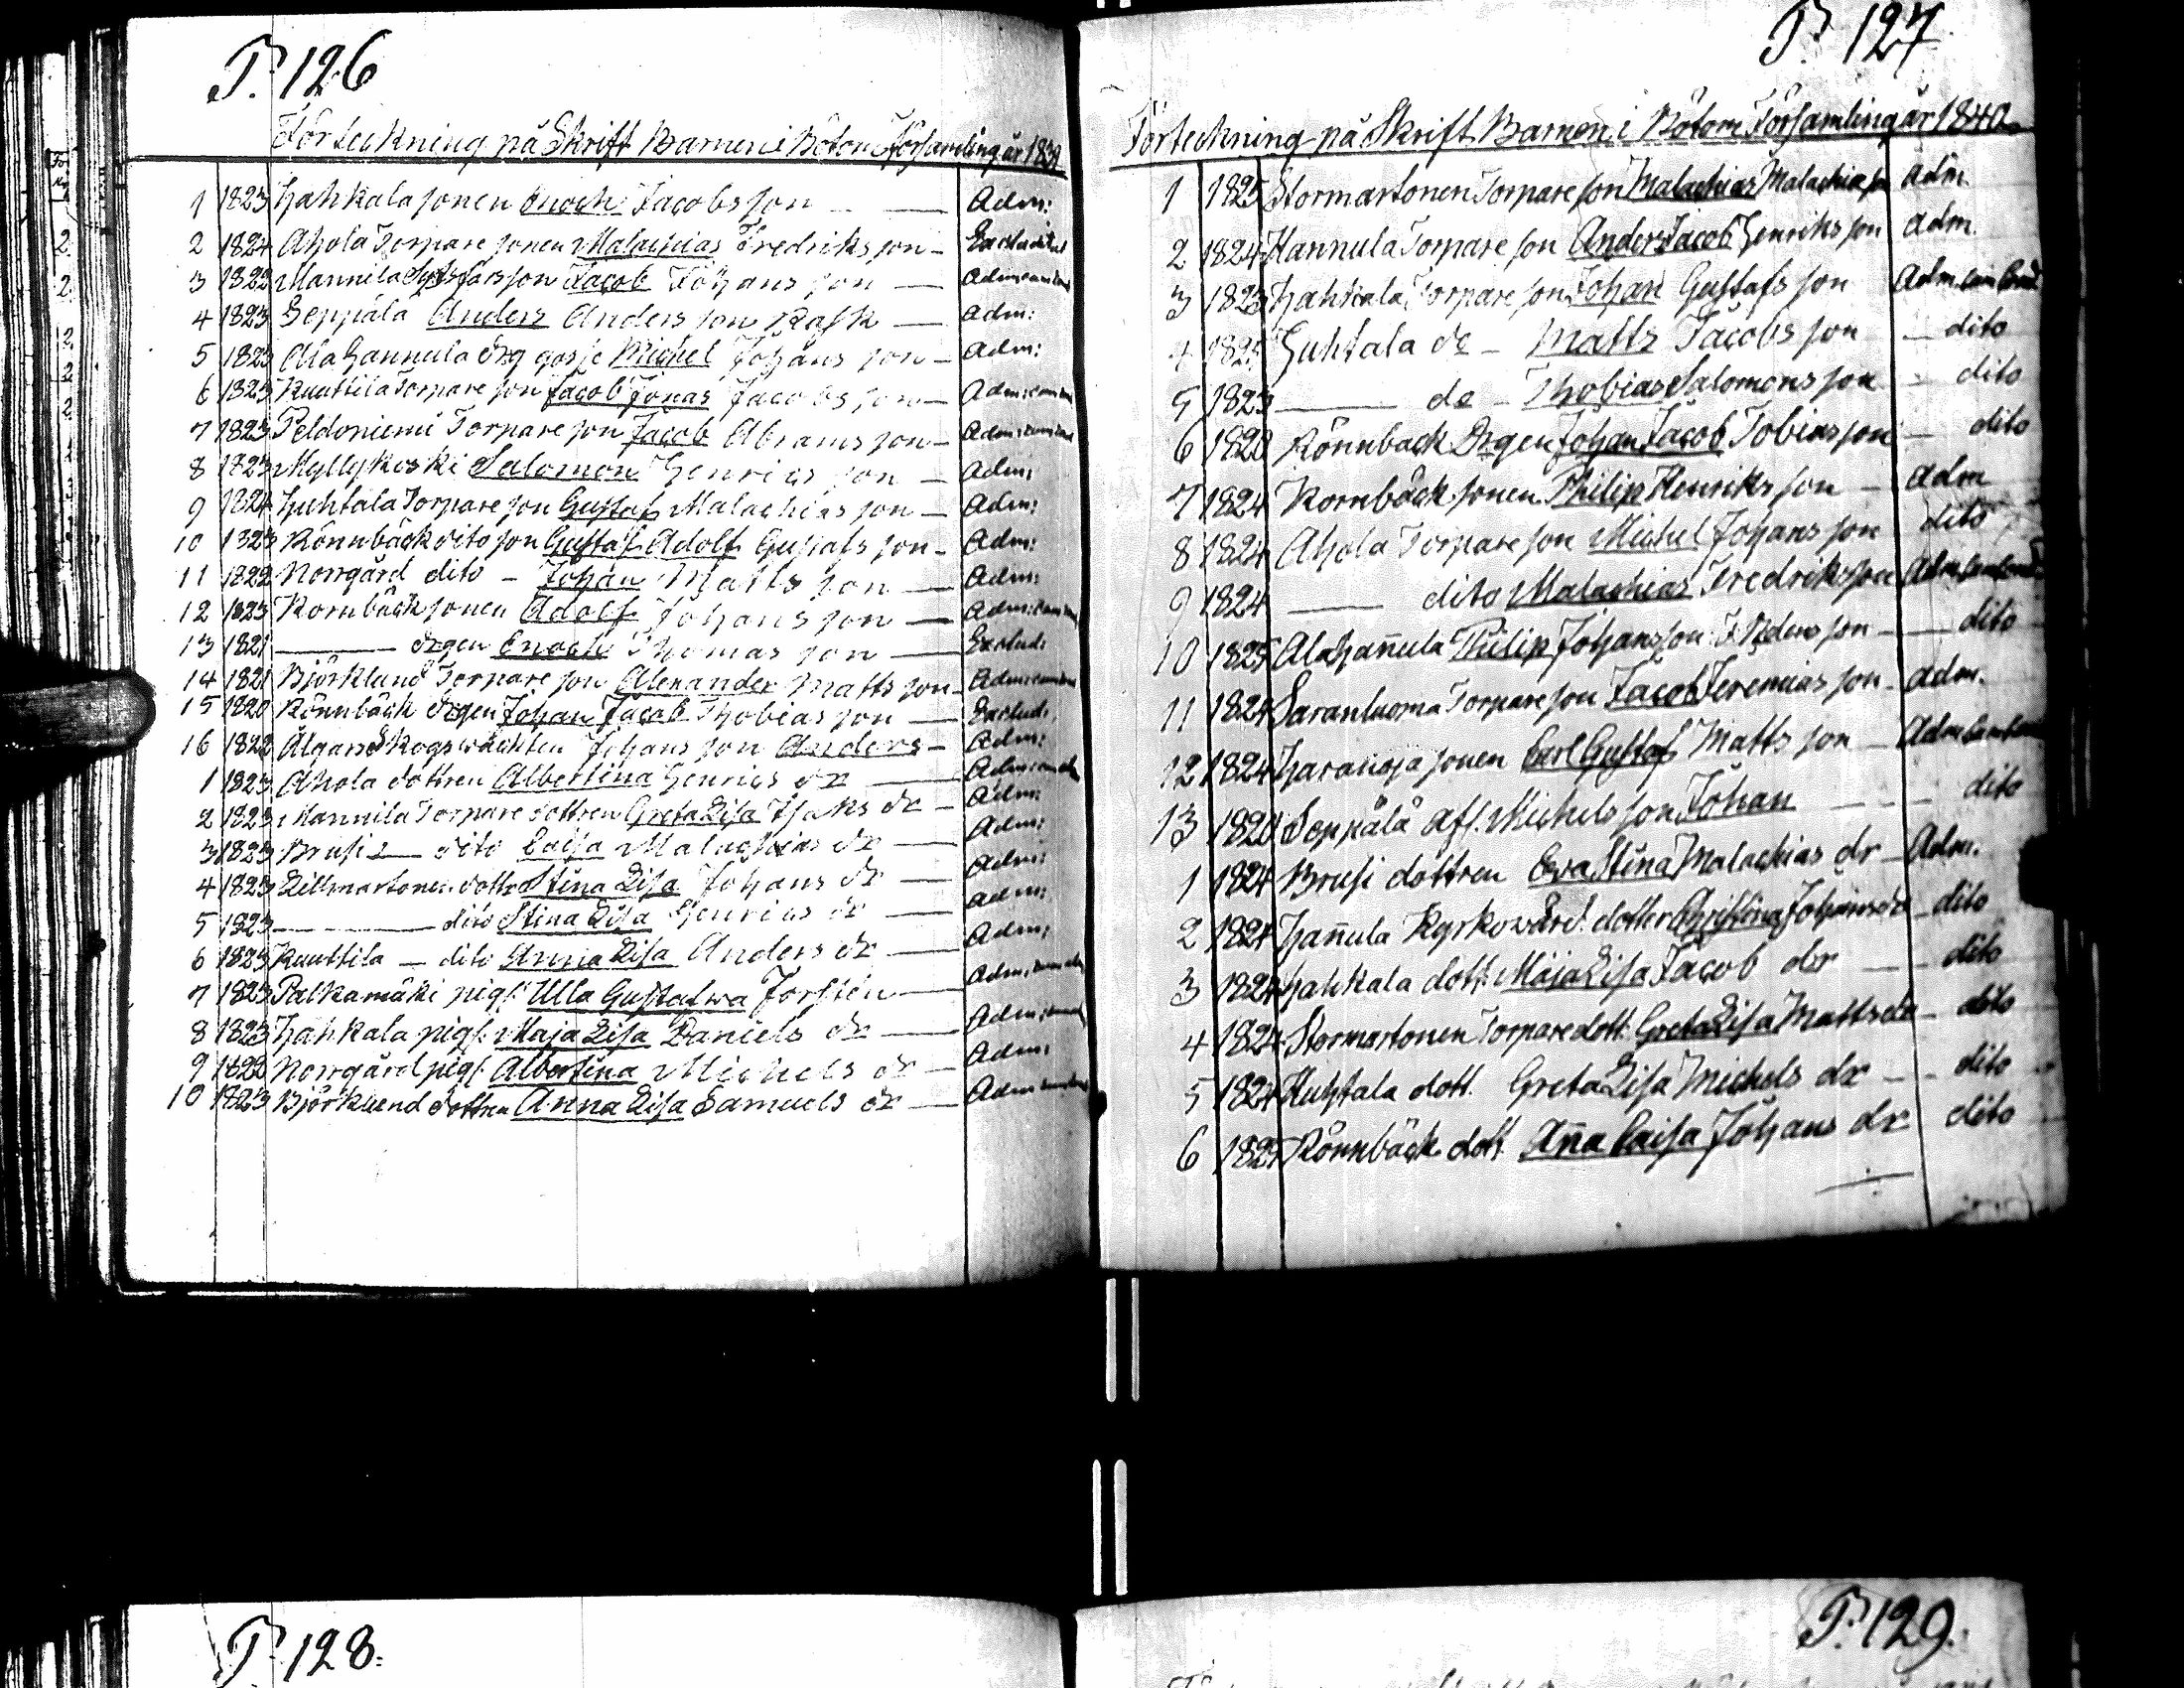 P. 126
Förteckning på Skrift Barnen i Bötom Församling år 1839
1 1823 Hahkala sonen Enoch Jacobsson Adm:
2 1824 Ahola Torpare sonen Malachias Fredriksson Excluderad
3 1822 Mannila son Jacob Johansson
4 1823 Seppälä Anders Andersson Rask Adm:
5 1823 Ala Hannula drg gosse Michel Johansson Adm:
6 1823 Kuuttila Torpare son Jacob Jonas Jacobsson
7 1823 Peldoniemi Torpare son Jacob Abramsson
8 1823 Myllykoski Salomon Henricsson Adm:
9 1824 Huhtala Torpare son Gustaf Malachiasson Adm:
10 1823 Rönnbäck dito son Gustaf Adolf Gustafsson Adm:
11 1822 Norrgård dito Johan Mattsson Adm:
12 1823 Kornbäck sonen Adolf Johansson
13 1821 drgen Enoch Thomasson Exclud:
14 1821 Björklund Torpare son Alexander Mattsson
15 1820 Rönnbäck drgen Johan Jacob Thobiasson Exclud:
16 1822 Skogswäckten Johansson Anders Adm:
1 1823 Ahola dottren Albertina Henrics dr
2 1823 Mannila Torpare dottren Greta Lisa Isaks dr Adm:
3 1823 Brusi dito Caisa Malachias dr Adm:
4 1823 Lillmartonen dottr Stina Lisa Johans dr Adm:
5 1823 dito Stina Lisa Henrics dr Adm:
6 1823 Kuuttila dito Anna Lisa Anders dr Adm:
7 1823 Palkamäki pig: Ulla Gustafwa Forstén
8 1823 Hahkala pig: Maja Lisa Daniels dr
9 1822 Norrgård pig: Albertina Michels dr Adm:
10 1823 Björklund dottren Anna Lisa Samuels dr
P. 127
Förteckning på Skrift Barnen i Bötom Församling år 1840
1 1825 Stormartonen Torpare son Malachias Malachiasson Adm.
2 1824 Hannula Torpare son Anders Jacob Henriksson Adm.
3 1823 Hahkala Torpare son Johan Gustafsson Adm.
4 1825 Huhtala do Matts Jacobsson dito
5 1823 do Thobias Salomonsson dito
6 1820 Rönnback Drgen Johan Jacob Tobiasson dito
7 1824 Kornbäck sonen Philip Henriksson Adm
8 1824 Ahola Torpare son Michel Johansson dito
9 1824 dito Malachias Fredriksson
10 1825 Alahañula Philip Johansson dito
11 1824 Saranluoma Torpare son Jacob Jeremiasson Adm.
12 1824 Haranoja sonen Carl Gustaf Mattsson
13 1820 Seppälä afs. Michelsson Johan dito
1 1824 Brusi dottren Ewa Stina Malachias dr Adm.
2 1824 Hañula Kyrkowärd. dotter Christina Johans dr dito
3 1824 Hahkala dott: Maja Lisa Jacob dr dito
4 1824 Stormartonen Torpare dott. Greta Lisa Matts dr dito
5 1824 Huhtala dott. Greta Lisa Michels dr dito
6 1825 Rönnbäck dott Aña Caisa Johans dr dito
P. 128.
P. 129.